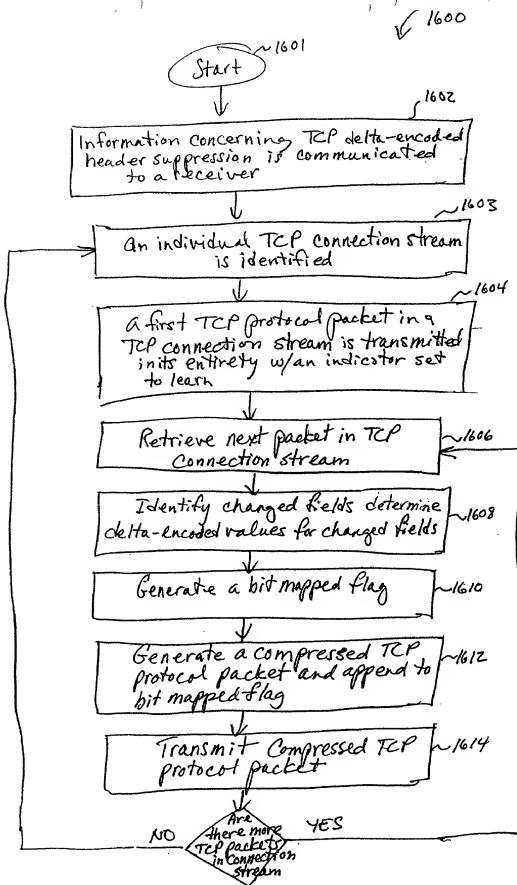 1600
1601
Start
1602
Information concerning TCP delta-encoded
header suppression is communicated
to a receiver
1603
An individual TCP connection stream
is identified
1604
A first TCP protocol packet in a
TCP connection stream is transmitted
in its entirety w/an indicator set
to learn
Retrieve next packet in TCP
Connection stream
1606
Identify changed fields determine
delta-encoded values for changed fields
1608
Generate a bit mapped flag
1610
Generate a compressed TCP
protocol packet and append to
bit mapped flag
1612
Transmit Compressed TCP
protocol packet
1614
NO
Are
there more
TCP packets
in Connection
stream
YES